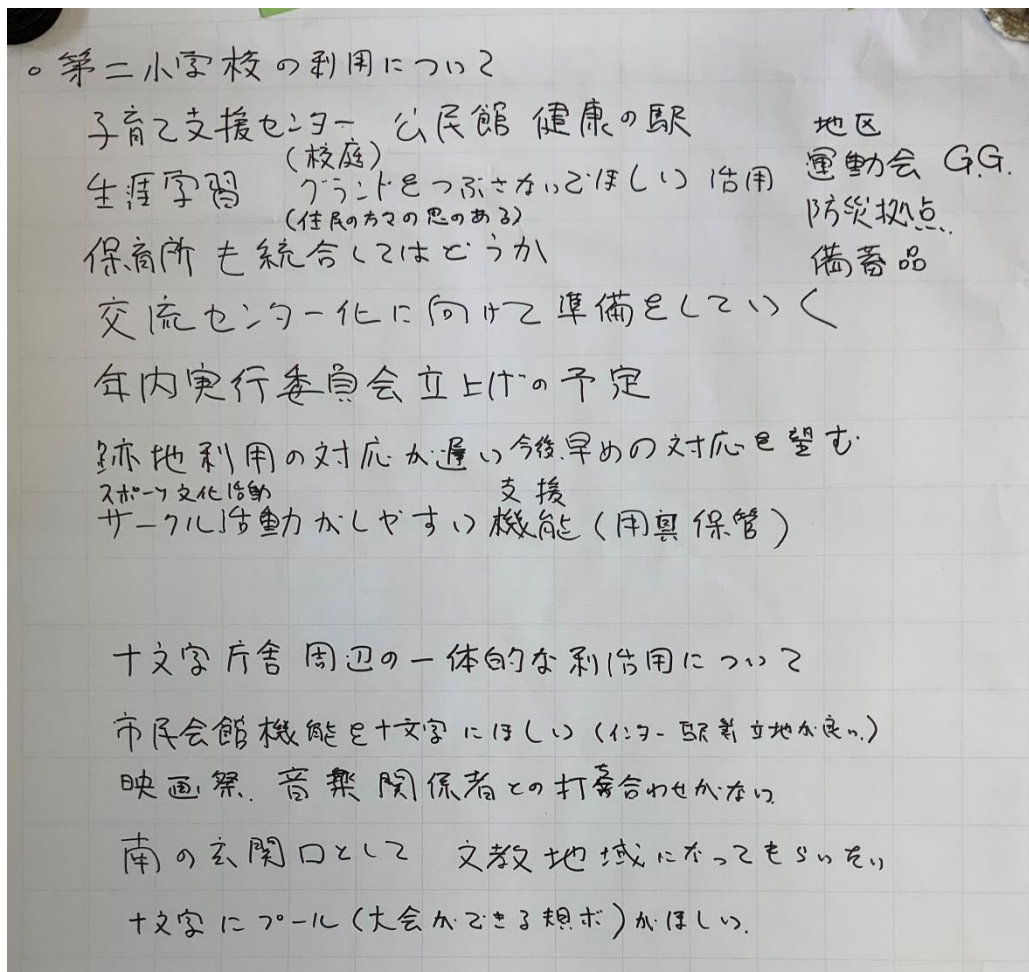 ○ 第二小学校の利用について
子育て支援センター 公民館 健康の駅
(校庭)
生涯学習 グランドをつぶさないでほしい 活用
(住民の方々の思のある)
保育所も統合してはどうか
地区
運動会 G.G.
防災拠点
備蓄品
交流センター化に向けて準備をしていく
年内実行委員会立上げの予定
跡地利用の対応が遅い 今後早めの対応を望む
スポーツ文化活動
支援
サークル活動がしやすい機能(用具保管)
十文字庁舎周辺の一体的な利活用について
市民会館機能を十文字にほしい(インター 駅前 立地が良い。)
映画祭. 音楽関係者との打合わせがない
南の玄関口として 文教地域になってもらいたい
十文字にプール(大会ができる規ボ)がほしい.